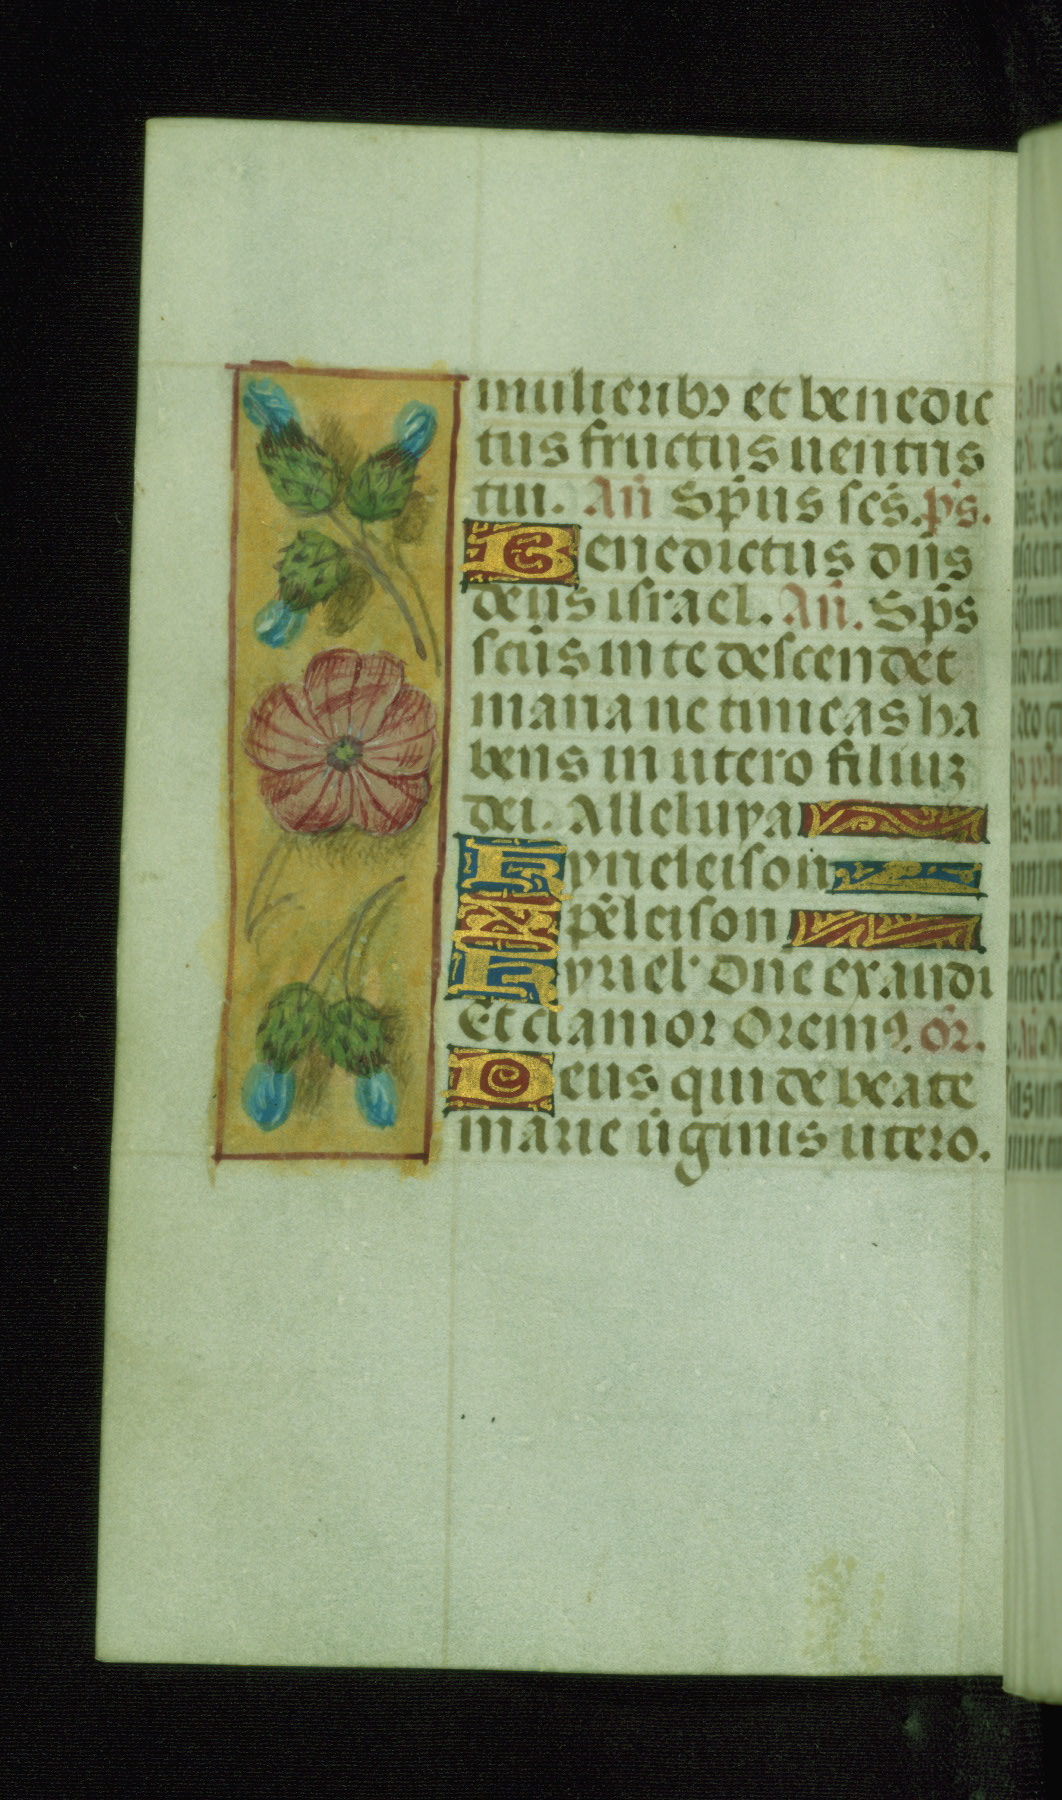 mulierib⁊ et benedic
tus fructus uentris
tui. An̄ Sp̄us sc̄s. p̄s.
Benedictus dn̄s
deus israel. An̄. Sp̄s
sc̄us in te descendet
maria ne timeas ha
bens in utero filiuꝫ
dei. Alleluya
Kyrieleison
xp̄eleison
kyriel' Dn̄e exaudi
Et clamor Oremꝰ. or̄.
Deus qui de beate
marie ūginis utero.